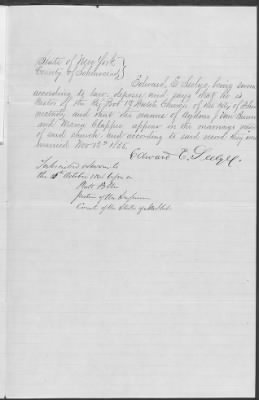 State of New York
County of Schenectady
Edward E. Seelye being sworn
according to law, deposes and says that he is
Pastor of the Ref. Prot. Dutch Church of the City of Schen-
ectady and that the names of Van Buren
and Maria Clapper appear in the marriage record
of said church and according to said record they were
married Nov
Edward E. Seelye.
Subscribed & sworn to
the October before me
Platt Potter
Justice of the Supreme
Court of the State of New York